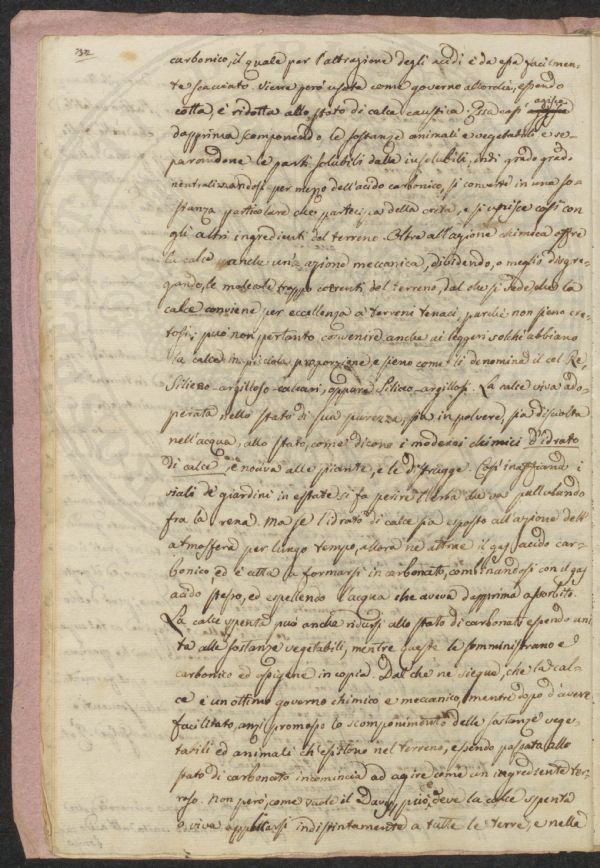 232
carbonico, il quale per l'attrazione degli acidi è da essa facilmen-
te scacciato. Viene però usata come governo allorchè, essendo
cotta, è ridotta allo stato di calce caustica. Essa così agisce
dapprima scomponendo le sostanze animali e vegetabili e se-
parandone le parti solubili dalle insolubili, indi grado grado
neutralizzandosi per mezzo dell'acido carbonico, si converte in una so-
stanza particolare che partecipa della creta, e si unisce così con
gli altri ingredienti del terreno. Oltre all'azione chimica offre
la calce anche un'azione meccanica, dividendo, o meglio disgre-
gando, le molecole troppo coerenti del terreno, dal che si vede, che la
calce conviene per eccellenza a terreni tenaci, purchè non sieno cre-
tosi; può non pertanto convenire anche ai leggeri solchi abbiano
la calce in picciola proporzione, e sieno come li denomina il col Re,
Siliceo-argilloso-calcari, oppure Siliceo-argillosi. La calce viva ado-
perata nello stato di sua purezza, sia in polvere, sia disciolta
nell'acqua, allo stato, come dicono i moderni chimici d'idrato
di calce, è nociva alle piante, e le distrugge. Così inaffiando i
viali de' giardini in estate si fa perire l'erba che va pullulando
fra la rena. Ma se l'idrato di calce sia esposto all'azione dell'
atmosfera per lungo tempo, allora ne attrae il gas acido car-
bonico, ed è atta a formarsi in carbonato, combinandosi con il gas
acido stesso, ed espellendo l'acqua che aveva dapprima assorbito.
La calce spenta può anche ridursi allo stato di carbonato essendo uni-
ta alle sostanze vegetabili, mentre queste le somministrano
carbonico ed ossigene in copia. Dal che ne siegue, che la cal-
ce è un ottimo governo chimico e meccanico, mentre dopo d'avere
facilitato, anzi promosso lo scomponimento delle sostanze vege-
tabili ed animali ch'esistono nel terreno, essendo passata allo
stato di carbonato incomincia ad agire come un ingrediente ter-
roso. Non però, come vuole il Davy, può, e deve la calce spenta
o viva appllicarsi indistintamente a tutte le terre, e nelle